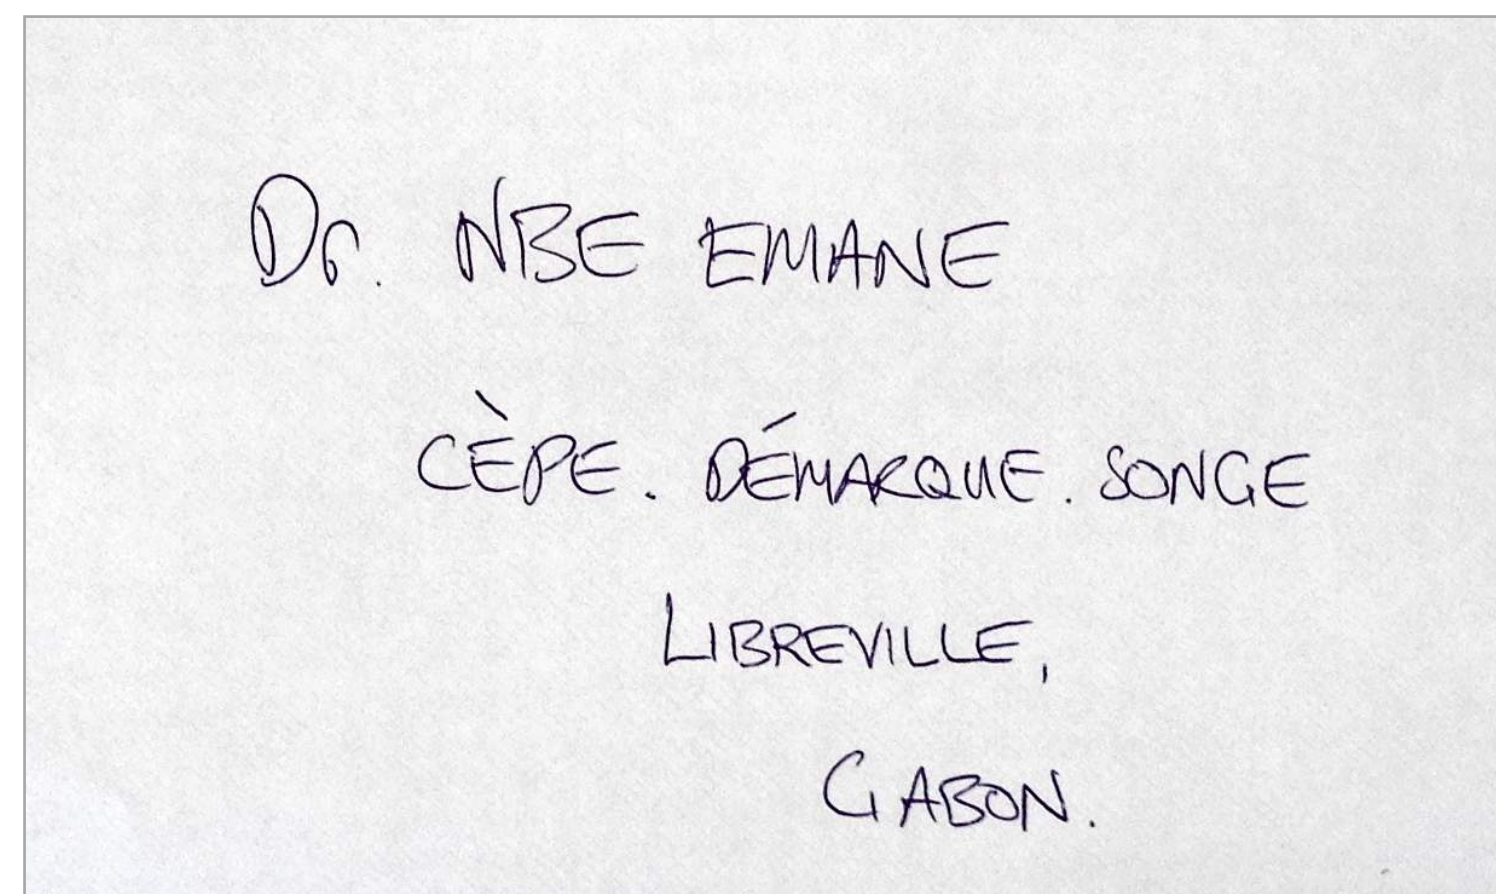 Dr. NBE EMANE
CÈPE. DÉMARQUE. SONGE
LIBREVILLE,
GABON.